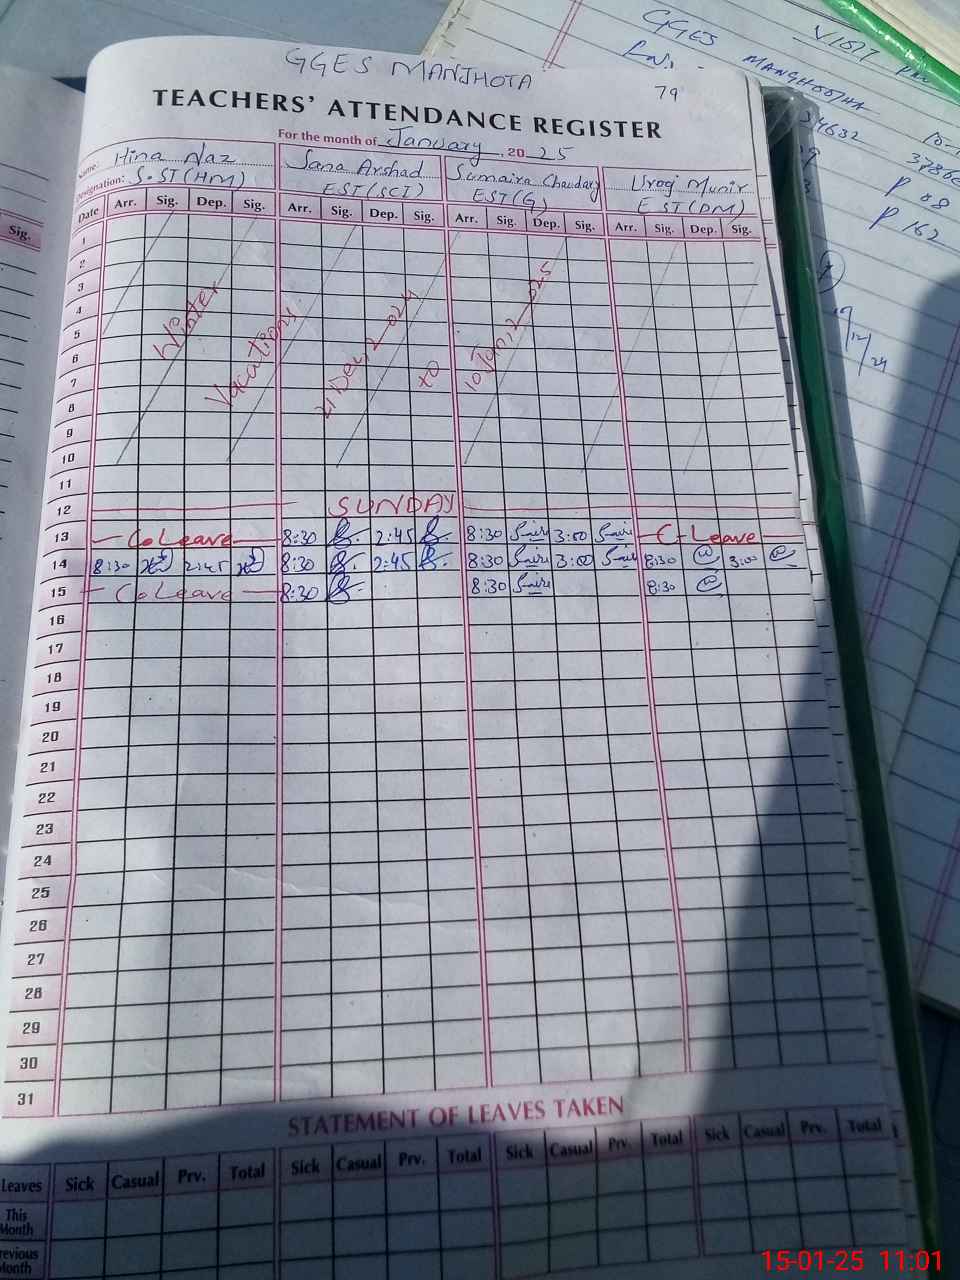 GGES MANJHOTA
79
TEACHERS' ATTENDANCE REGISTER
For the month of January, 2025
Name: Hina Naz Sana Arshad Sumaira Chaudary Uroj Munir
Designation: S.ST(HM) EST(SCI) EST(G) EST(DM)
Date Arr. Sig. Dep. Sig. Arr. Sig. Dep. Sig. Arr. Sig. Dep. Sig. Arr. Sig. Dep. Sig.
1
2
3
4
5
6
7
8
9
10
11
Winter Vacations 21 Dec, 2024 to 10 Jan, 2025
12 SUNDAY
13 Co Leave 8:30 2:45 8:30 3:00 C-Leave
14 8:30 2:45 8:30 2:45 8:30 3:00 8:30 3:00
15 Co Leave 8:30 8:30 8:30
16
17
18
19
20
21
22
23
24
25
26
27
28
29
30
31
STATEMENT OF LEAVES TAKEN
Leaves Sick Casual Prv. Total Sick Casual Prv. Total Sick Casual Prv. Total Sick Casual Prv. Total
This Month
Previous Month
Sig.
VISIT
GGES MANGHOOTHA
34632
P 08
P 162
19/12/24
15-01-25 11:01